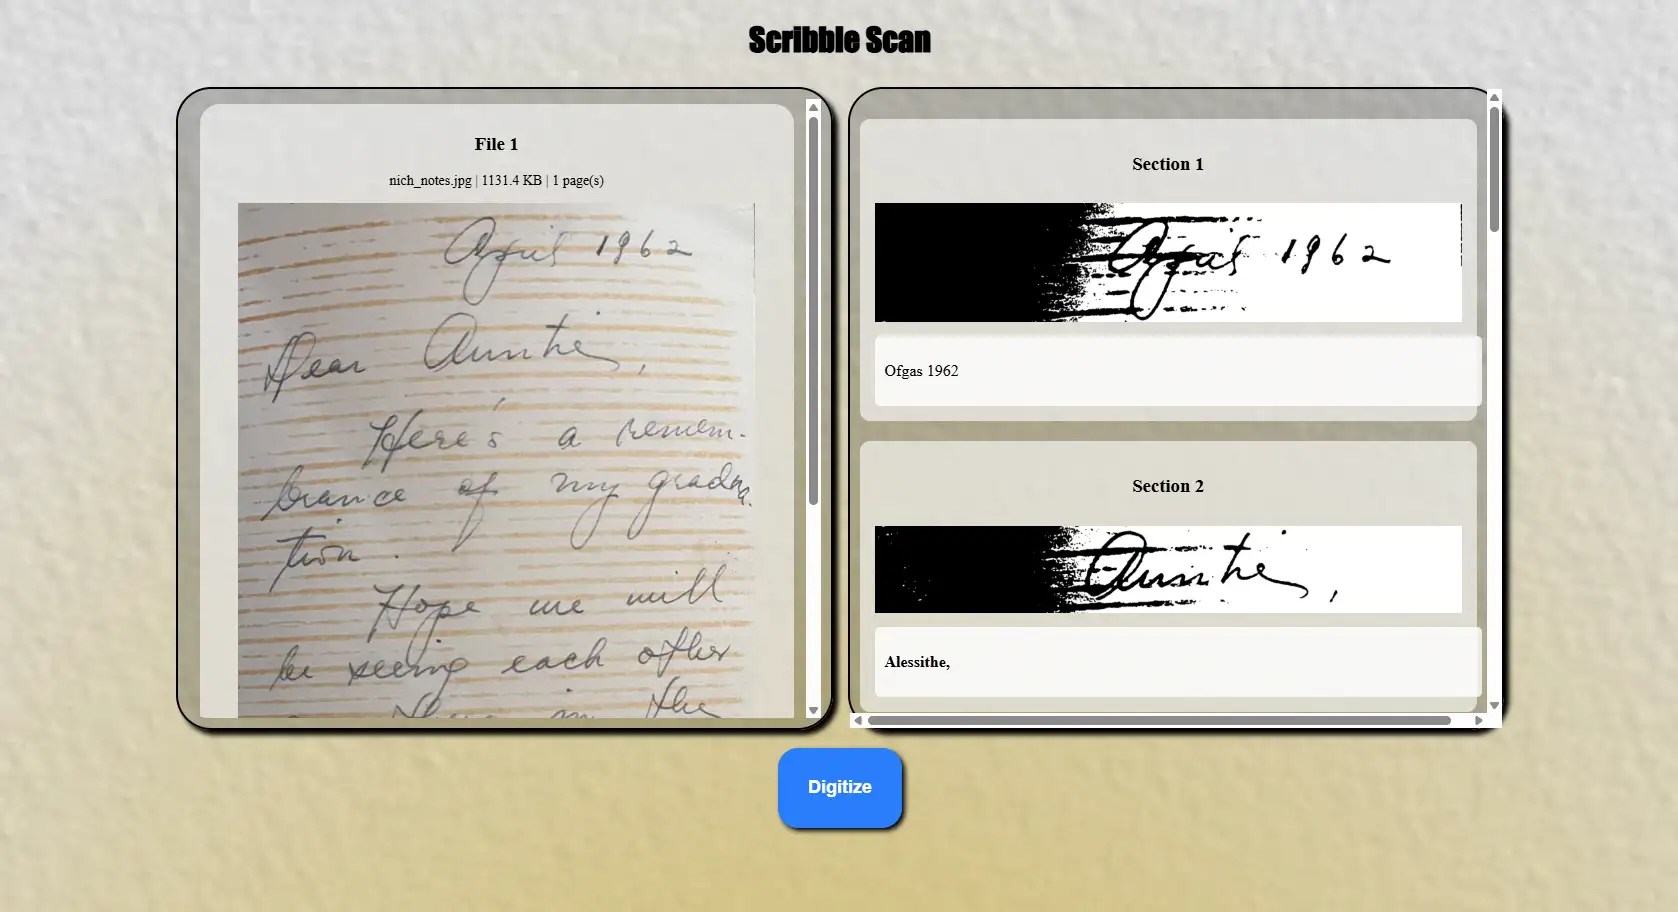 Scribble Scan
File 1
nich_notes.jpg | 1131.4 KB | 1 page(s)
April 1962
Dear Auntie,
Here's a remem-
brance of my gradua-
tion.
Hope we will
be seeing each other
there in the
Section 1
April 1962
Ofgas 1962
Section 2
Auntie,
Alessithe,
Digitize